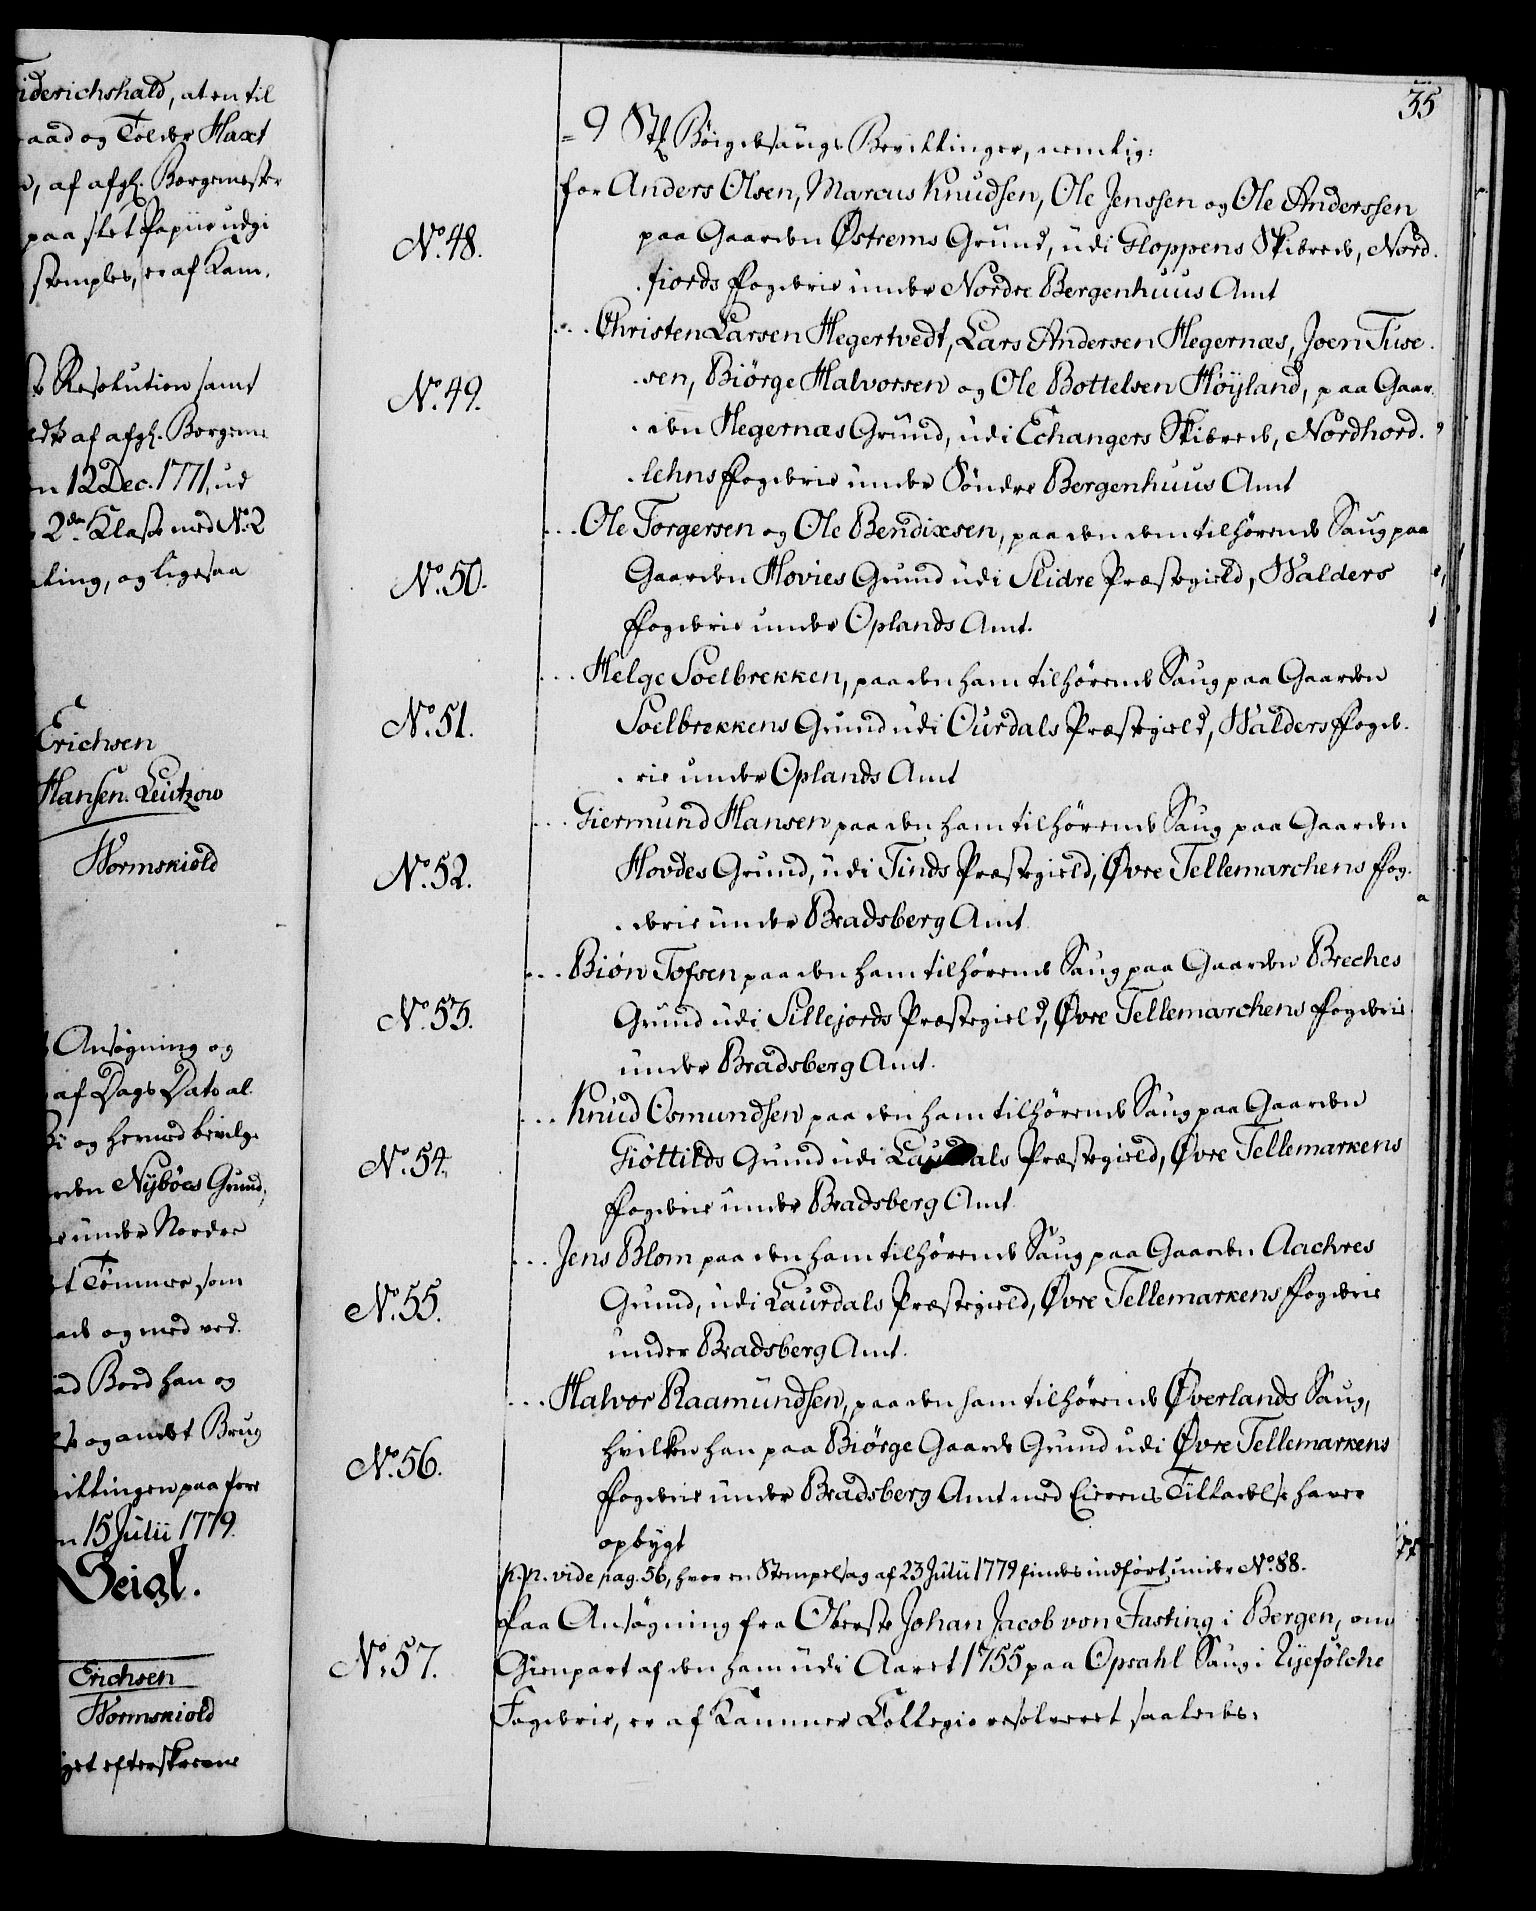 iderichshald, at en til
raad og Tolder Haxt
af afgl. Borgemester
paa slet Papiir udgi
stemples, er af Kam.
Resolution samt
af afgl. Borgem.
n 12 Dec. 1771, ud
2den Klasse med No. 2
ling, og ligesaa
Erichsen
Hansen. Leützow
Wormskiold
Ansøgning og
af Dags Dato al.
og hermed bevilge
rden Nÿbøes Grund,
under Nordre
t Tømmer som
og med ved.
ad Bord han og
og andet Brug
villingen paa fore
n 15 Julii 1779.
Seigl.
Erichsen
Wormskiold
get efterskrevne
35
= 9 Stk Böigdesaugs Bevillinger, nemlig:
for Anders Olsen, Marcus Knudsen, Ole Jenssen og Ole Anderssen
No. 48.
paa Gaarden Østrems Grund, udi Gloppens Skibrede, Nord.
fiords Fogderie under Nordre Bergenhuus Amt
... Christen Larsen Hegertvedt, Lars Andersen Hegernæs, Joen Tuse.
No. 49.
sen, Biörge Halvorsen og Ole Bottelsen Höÿland, paa Gaar.
den Hegernæs Grund, udi Echangers Skibrede, Nordhord.
lehns Fogderie under Söndre Bergenhuus Amt
... Ole Torgersen og Ole Bendixsen, paa den dem tilhørende Saug paa
No. 50.
Gaarden Hovies Grund udi Slidre Præstegield, Walders
Fogderie under Oplands Amt.
... Helge Soelbrekken, paa den ham tilhørende Saug paa Gaarden
No. 51.
Soelbrekkens Grund udi Ourdals Præstegield, Walders Fogde.
rie under Oplands Amt
... Giermund Hansen paa den ham tilhørende Saug paa Gaarden
No. 52.
Hovdes Grund, udi Tinds Præstegield, Øvre Tellemarchens Fog.
derie under Bradsberg Amt
... Biön Tofsen paa den ham tilhørende Saug paa Gaarden Breches
No. 53.
Grund udi Sillejords Præstegield, Øvre Tellemarchens Fogderie
under Bradsberg Amt.
... Knud Osmundsen paa den ham tilhørende Saug paa Gaarden
No. 54.
Giöttilds Grund udi Laurdals Præstegield, Øvre Tellemarkens
Fogderie under Bradsberg Amt
... Jens Blom paa den ham tilhørende Saug paa Gaarden Aachres
No. 55.
Grund, udi Laurdals Præstegield, Øvre Tellemarkens Fogderie
under Bradsberg Amt.
... Halvor Raamundsen, paa den ham tilhørende Øverlands Saug,
No. 56.
hvilken han paa Biörge Gaards Grund udi Øvre Tellemarkens
Fogderie under Bradsberg Amt med Eierens Tilladelse haver
opbygt
p.p. vide pag. 56, hvor en Stempelsag af 23 Julii 1779 findes indført under No. 88.
Paa Ansøgning fra Oberste Johan Jacob von Fasting i Bergen, om
No. 57.
Gienpart af den ham udi Aaret 1755 paa Opsahl Saug i Ryefölche
Fogderie, er af Kammer Collegio resolveret saaledes: